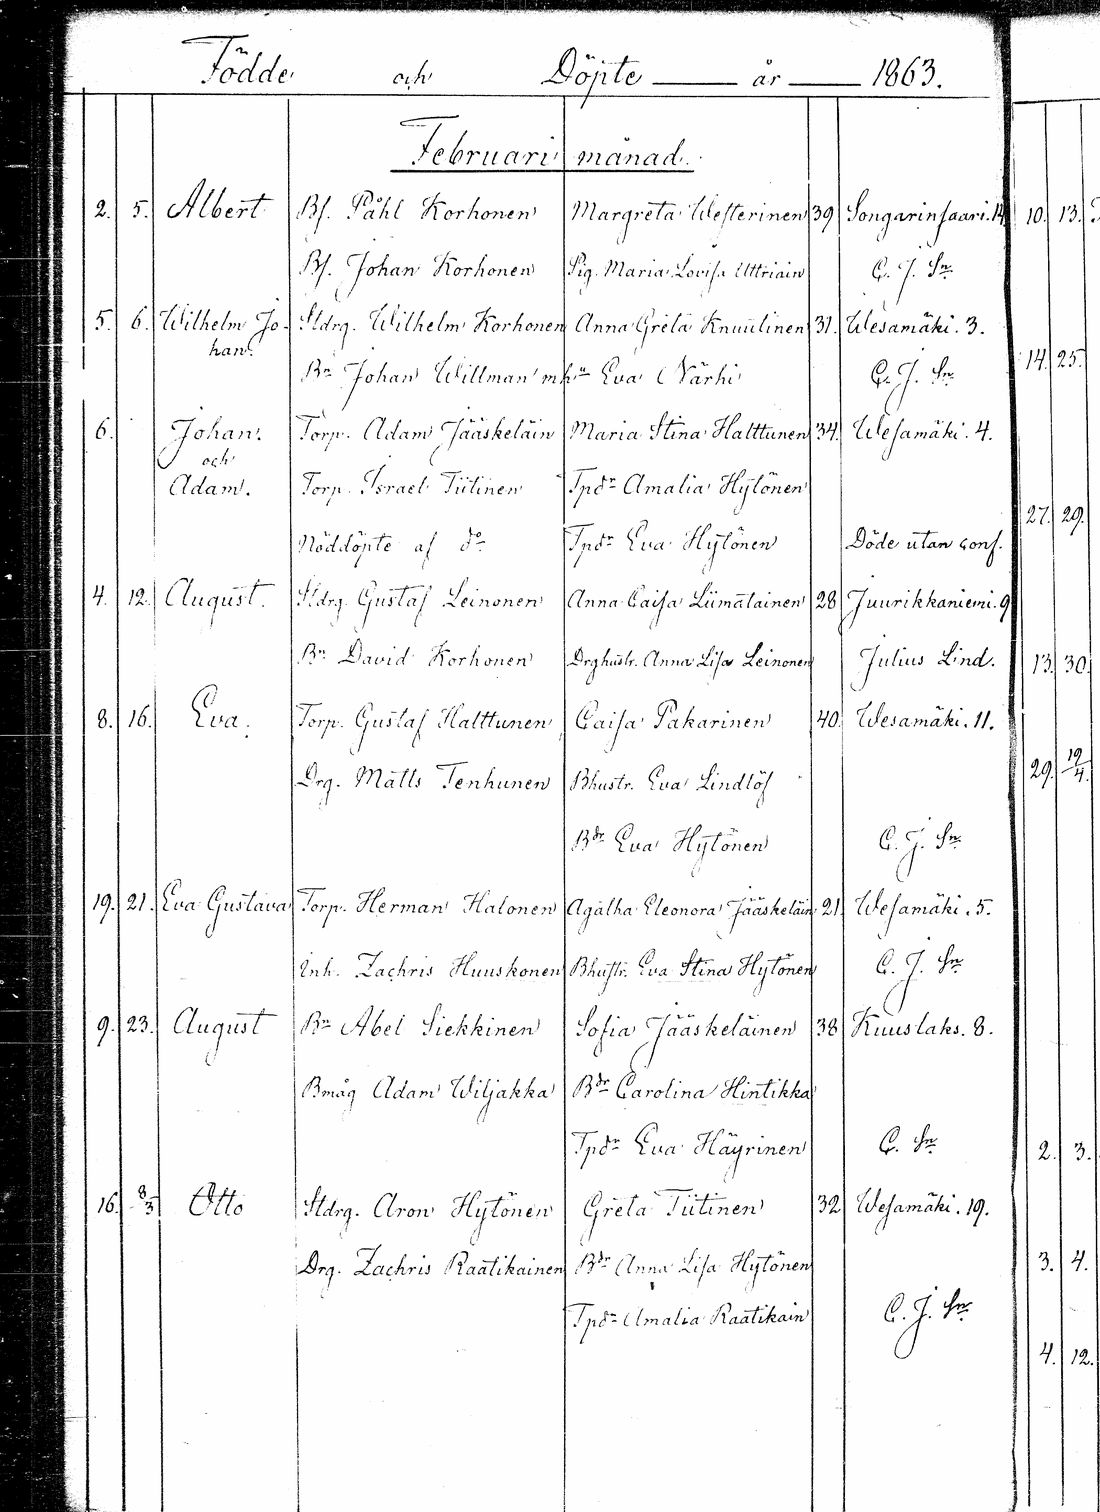 Födde och Döpte — år — 1863.
Februari månad.
2. 5. Albert Bf. Påhl Korhonen Margreta Westerinen 39 Songarinsaari. 14
Bf. Johan Korhonen Pig. Maria Lovisa Uttriain C. J. Sn
5. 6. Wilhelm Jo- Stdrg. Wilhelm Korhonen Anna Greta Knuutinen 31. Wesamäki. 3.
han.
Bn Johan Willman m hu Eva Närhi C. J. Sn
6. Johan. Torp. Adam Jääskeläin Maria Stina Halttunen 34. Wesamäki. 4.
och
Adam. Torp. Israel Tiitinen Tpdr Amalia Hytönen
Nöddöpte af do Tpdr Eva Hytönen Döde utan conf.
4. 12. August. Stdrg. Gustaf Leinonen Anna Caisa Liimatainen 28 Juurikkaniemi. 9
Bn David Korhonen Drghustr. Anna Lisa Leinonen Julius Lind.
8. 16. Eva. Torp. Gustaf Halttunen Caisa Pakarinen 40. Wesamäki. 11.
Drg. Matts Tenhunen Bhustr. Eva Lindlöf
Bdr Eva Hytönen C. J. Sn
19. 21. Eva Gustava Torp. Herman Halonen Agatha Eleonora Jääskeläin 21. Wesamäki. 5.
Inh. Zachris Huuskonen Bhustr. Eva Stina Hytönen C. J. Sn
9. 23. August Bn Abel Siekkinen Sofia Jääskeläinen 38 Kuuslaks. 8.
Bmåg Adam Wiljakka Bdr Carolina Hintikka
Tpdr Eva Häyrinen C. Sn
16. 8/3 Otto Stdrg. Aron Hytönen Greta Tiitinen 32 Wesamäki. 19.
Drg. Zachris Raatikainen Bdr Anna Lisa Hytönen
Tpdr Amalia Raatikain C. J. Sn
10. 13.
14. 25.
27. 29.
13. 30.
29. 12/4.
2. 3.
3. 4.
4. 12.